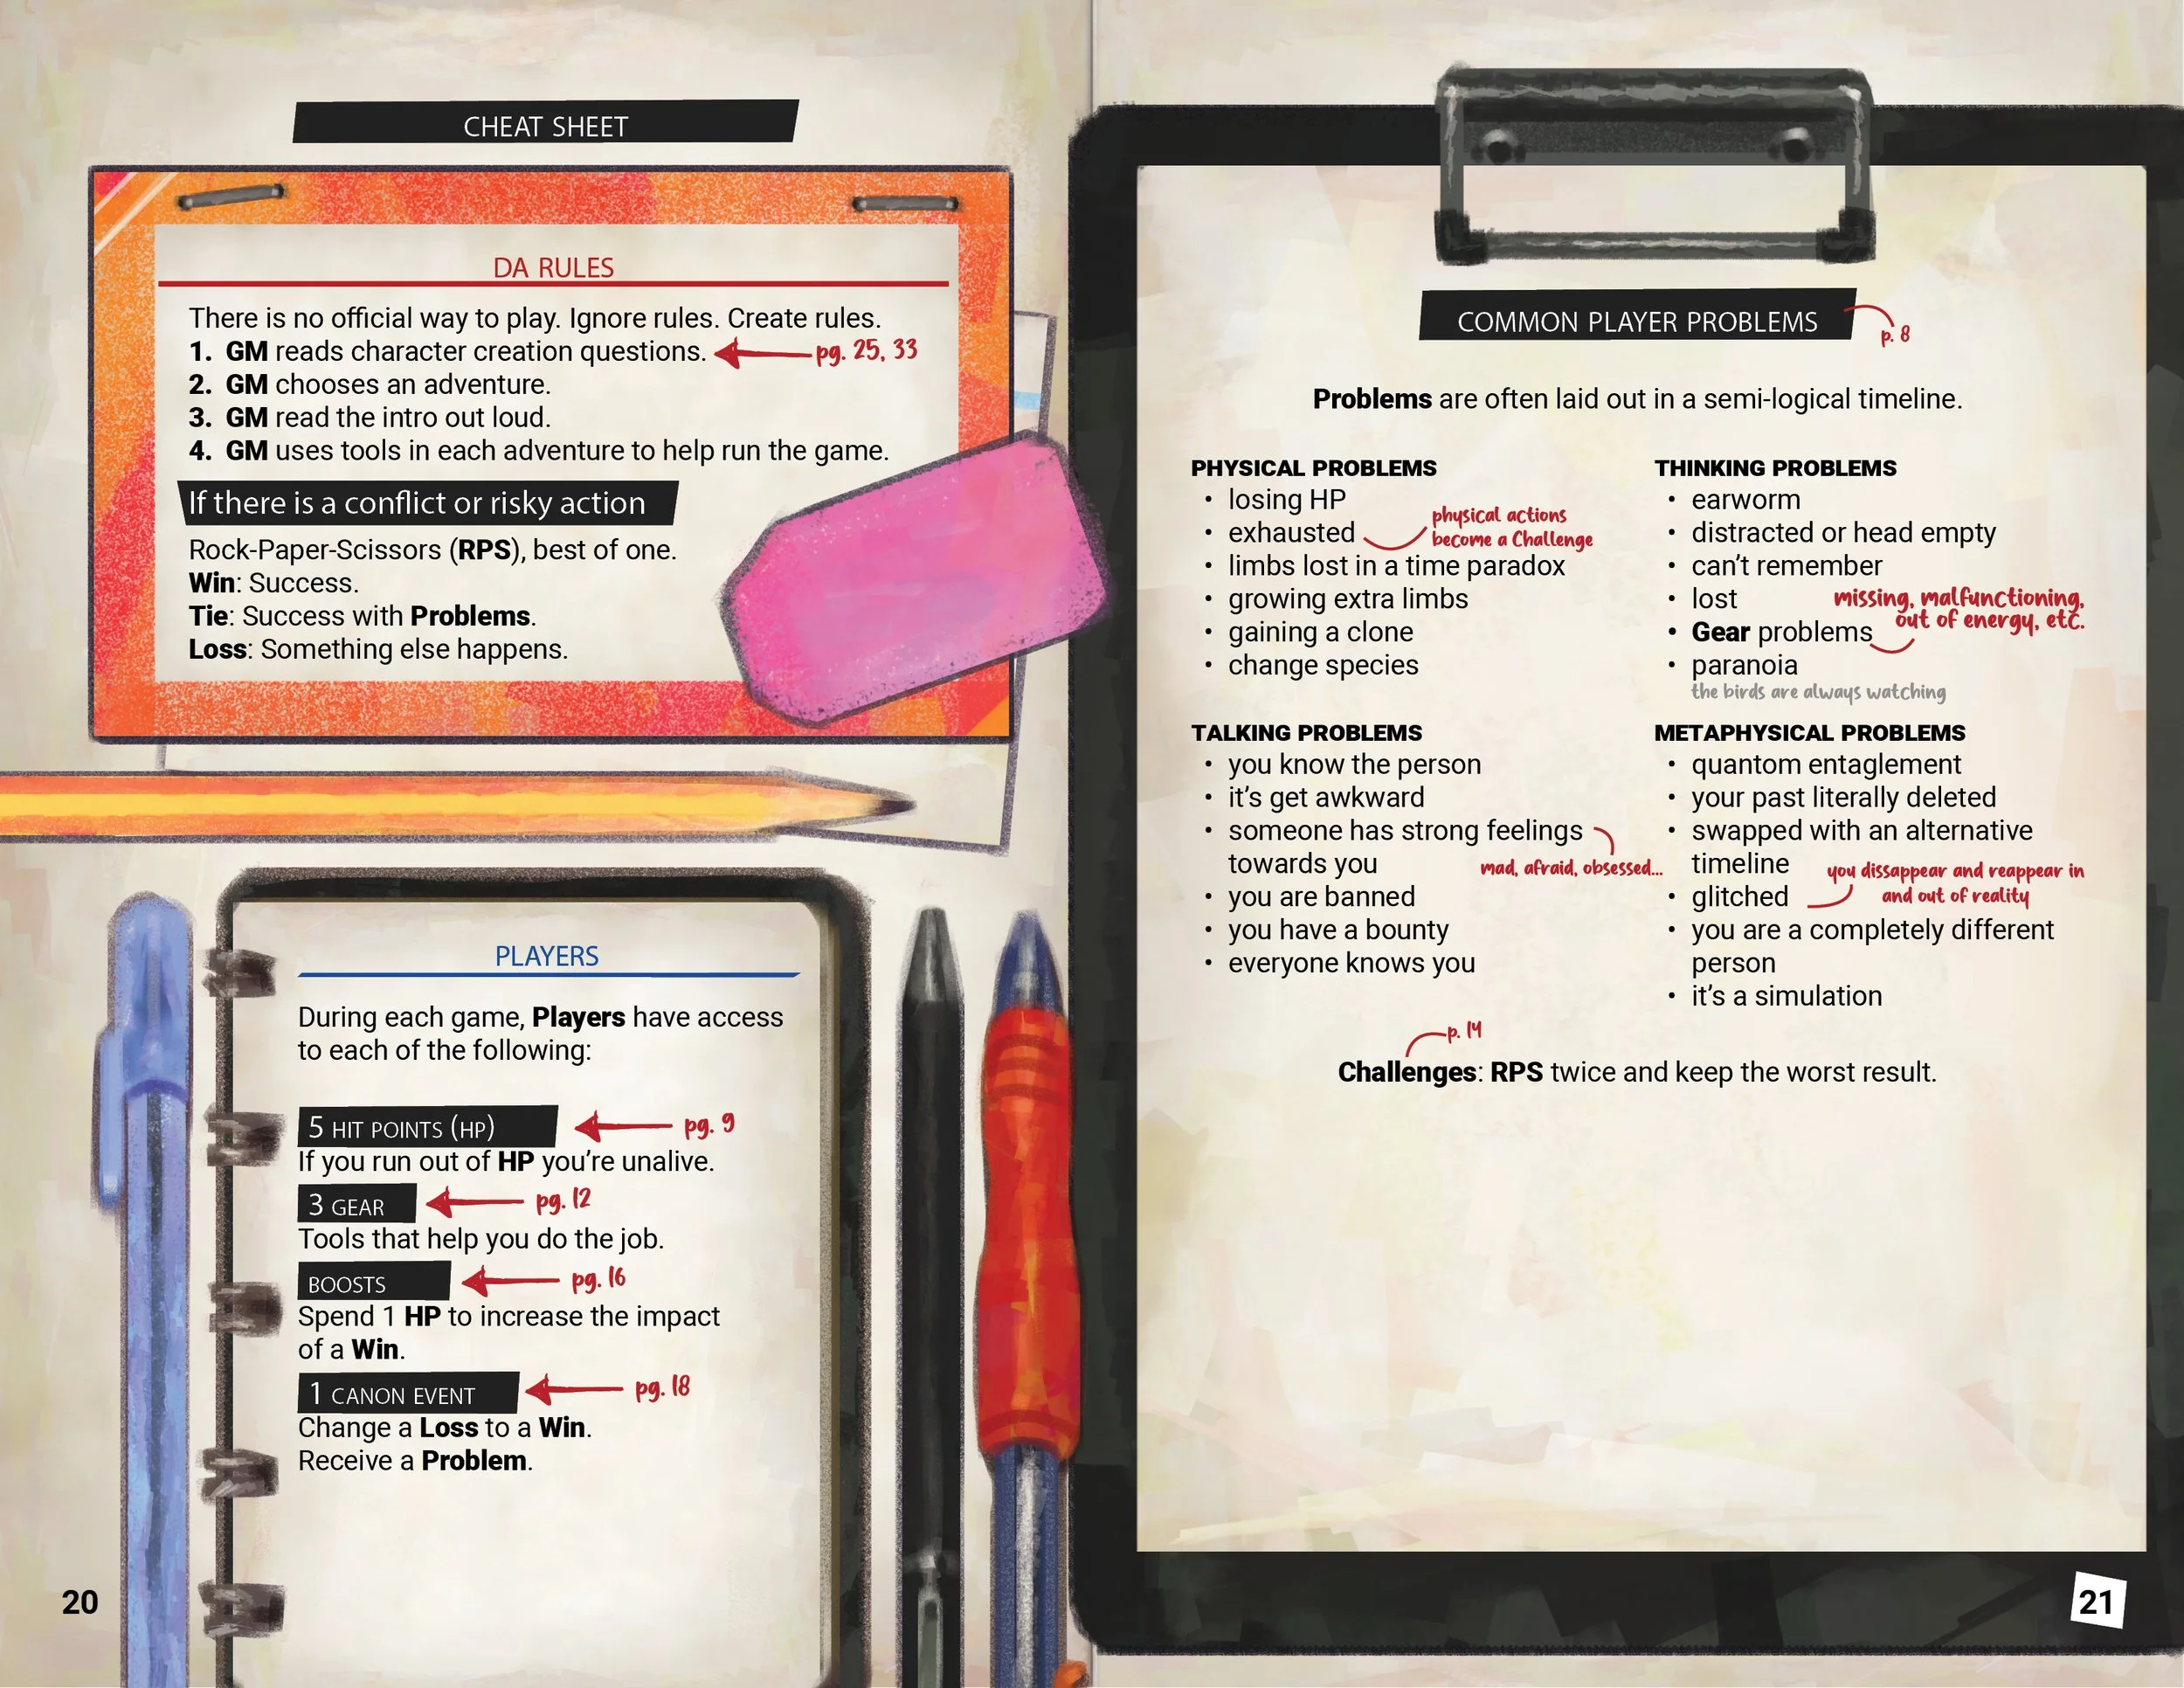 CHEAT SHEET
DA RULES
There is no official way to play. Ignore rules. Create rules.
1. GM reads character creation questions.
pg. 25, 33
2. GM chooses an adventure.
3. GM read the intro out loud.
4. GM uses tools in each adventure to help run the game.
If there is a conflict or risky action
Rock-Paper-Scissors (RPS), best of one.
Win: Success.
Tie: Success with Problems.
Loss: Something else happens.
PLAYERS
During each game, Players have access
to each of the following:
5 HIT POINTS (HP)
pg. 9
If you run out of HP you're unalive.
3 GEAR
pg. 12
Tools that help you do the job.
BOOSTS
pg. 16
Spend 1 HP to increase the impact
of a Win.
1 CANON EVENT
pg. 18
Change a Loss to a Win.
Receive a Problem.
20
COMMON PLAYER PROBLEMS
p. 8
Problems are often laid out in a semi-logical timeline.
PHYSICAL PROBLEMS
• losing HP
• exhausted
physical actions
become a Challenge
• limbs lost in a time paradox
• growing extra limbs
• gaining a clone
• change species
THINKING PROBLEMS
• earworm
• distracted or head empty
• can't remember
• lost
• Gear problems
missing, malfunctioning,
out of energy, etc.
• paranoia
the birds are always watching
TALKING PROBLEMS
• you know the person
• it's get awkward
• someone has strong feelings
towards you
mad, afraid, obsessed...
• you are banned
• you have a bounty
• everyone knows you
METAPHYSICAL PROBLEMS
• quantom entaglement
• your past literally deleted
• swapped with an alternative
timeline
• glitched
you dissappear and reappear in
and out of reality
• you are a completely different
person
• it's a simulation
p. 14
Challenges: RPS twice and keep the worst result.
21